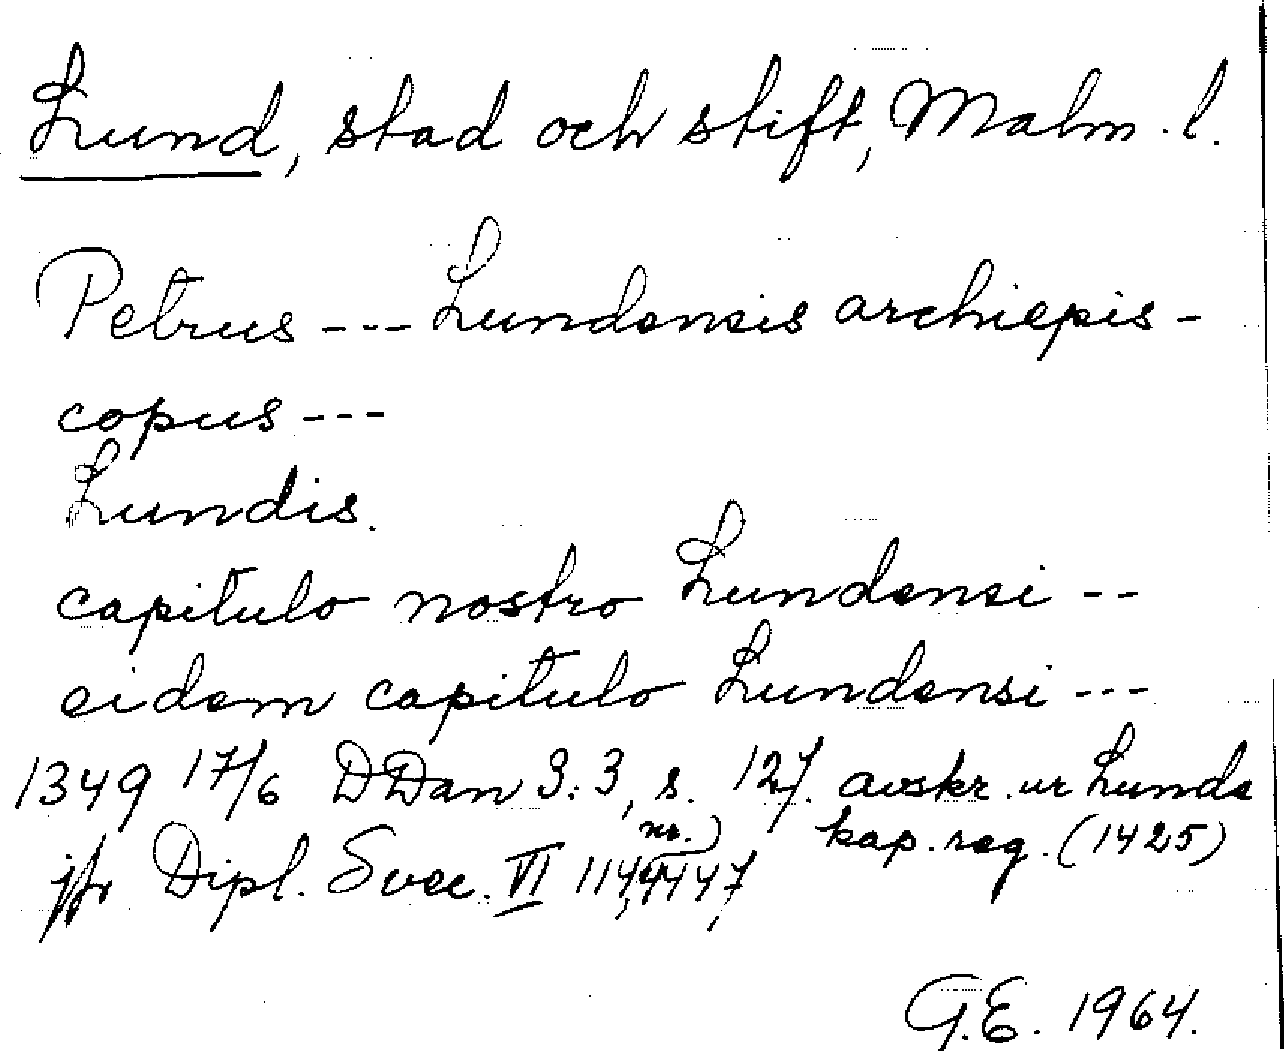 Lund, stad och stift, Malm. l.
Petrus --- Lundensis archiepis-
copus ---
Lundis.
capitulo nostro Lundensi --
eidem capitulo Lundensi ---
1349 17/6 DDan 3:3, s. 127. avskr. ur Lunds
kap. reg. (1425)
jfr Dipl. Svec. VI nr.
G.E. 1964.